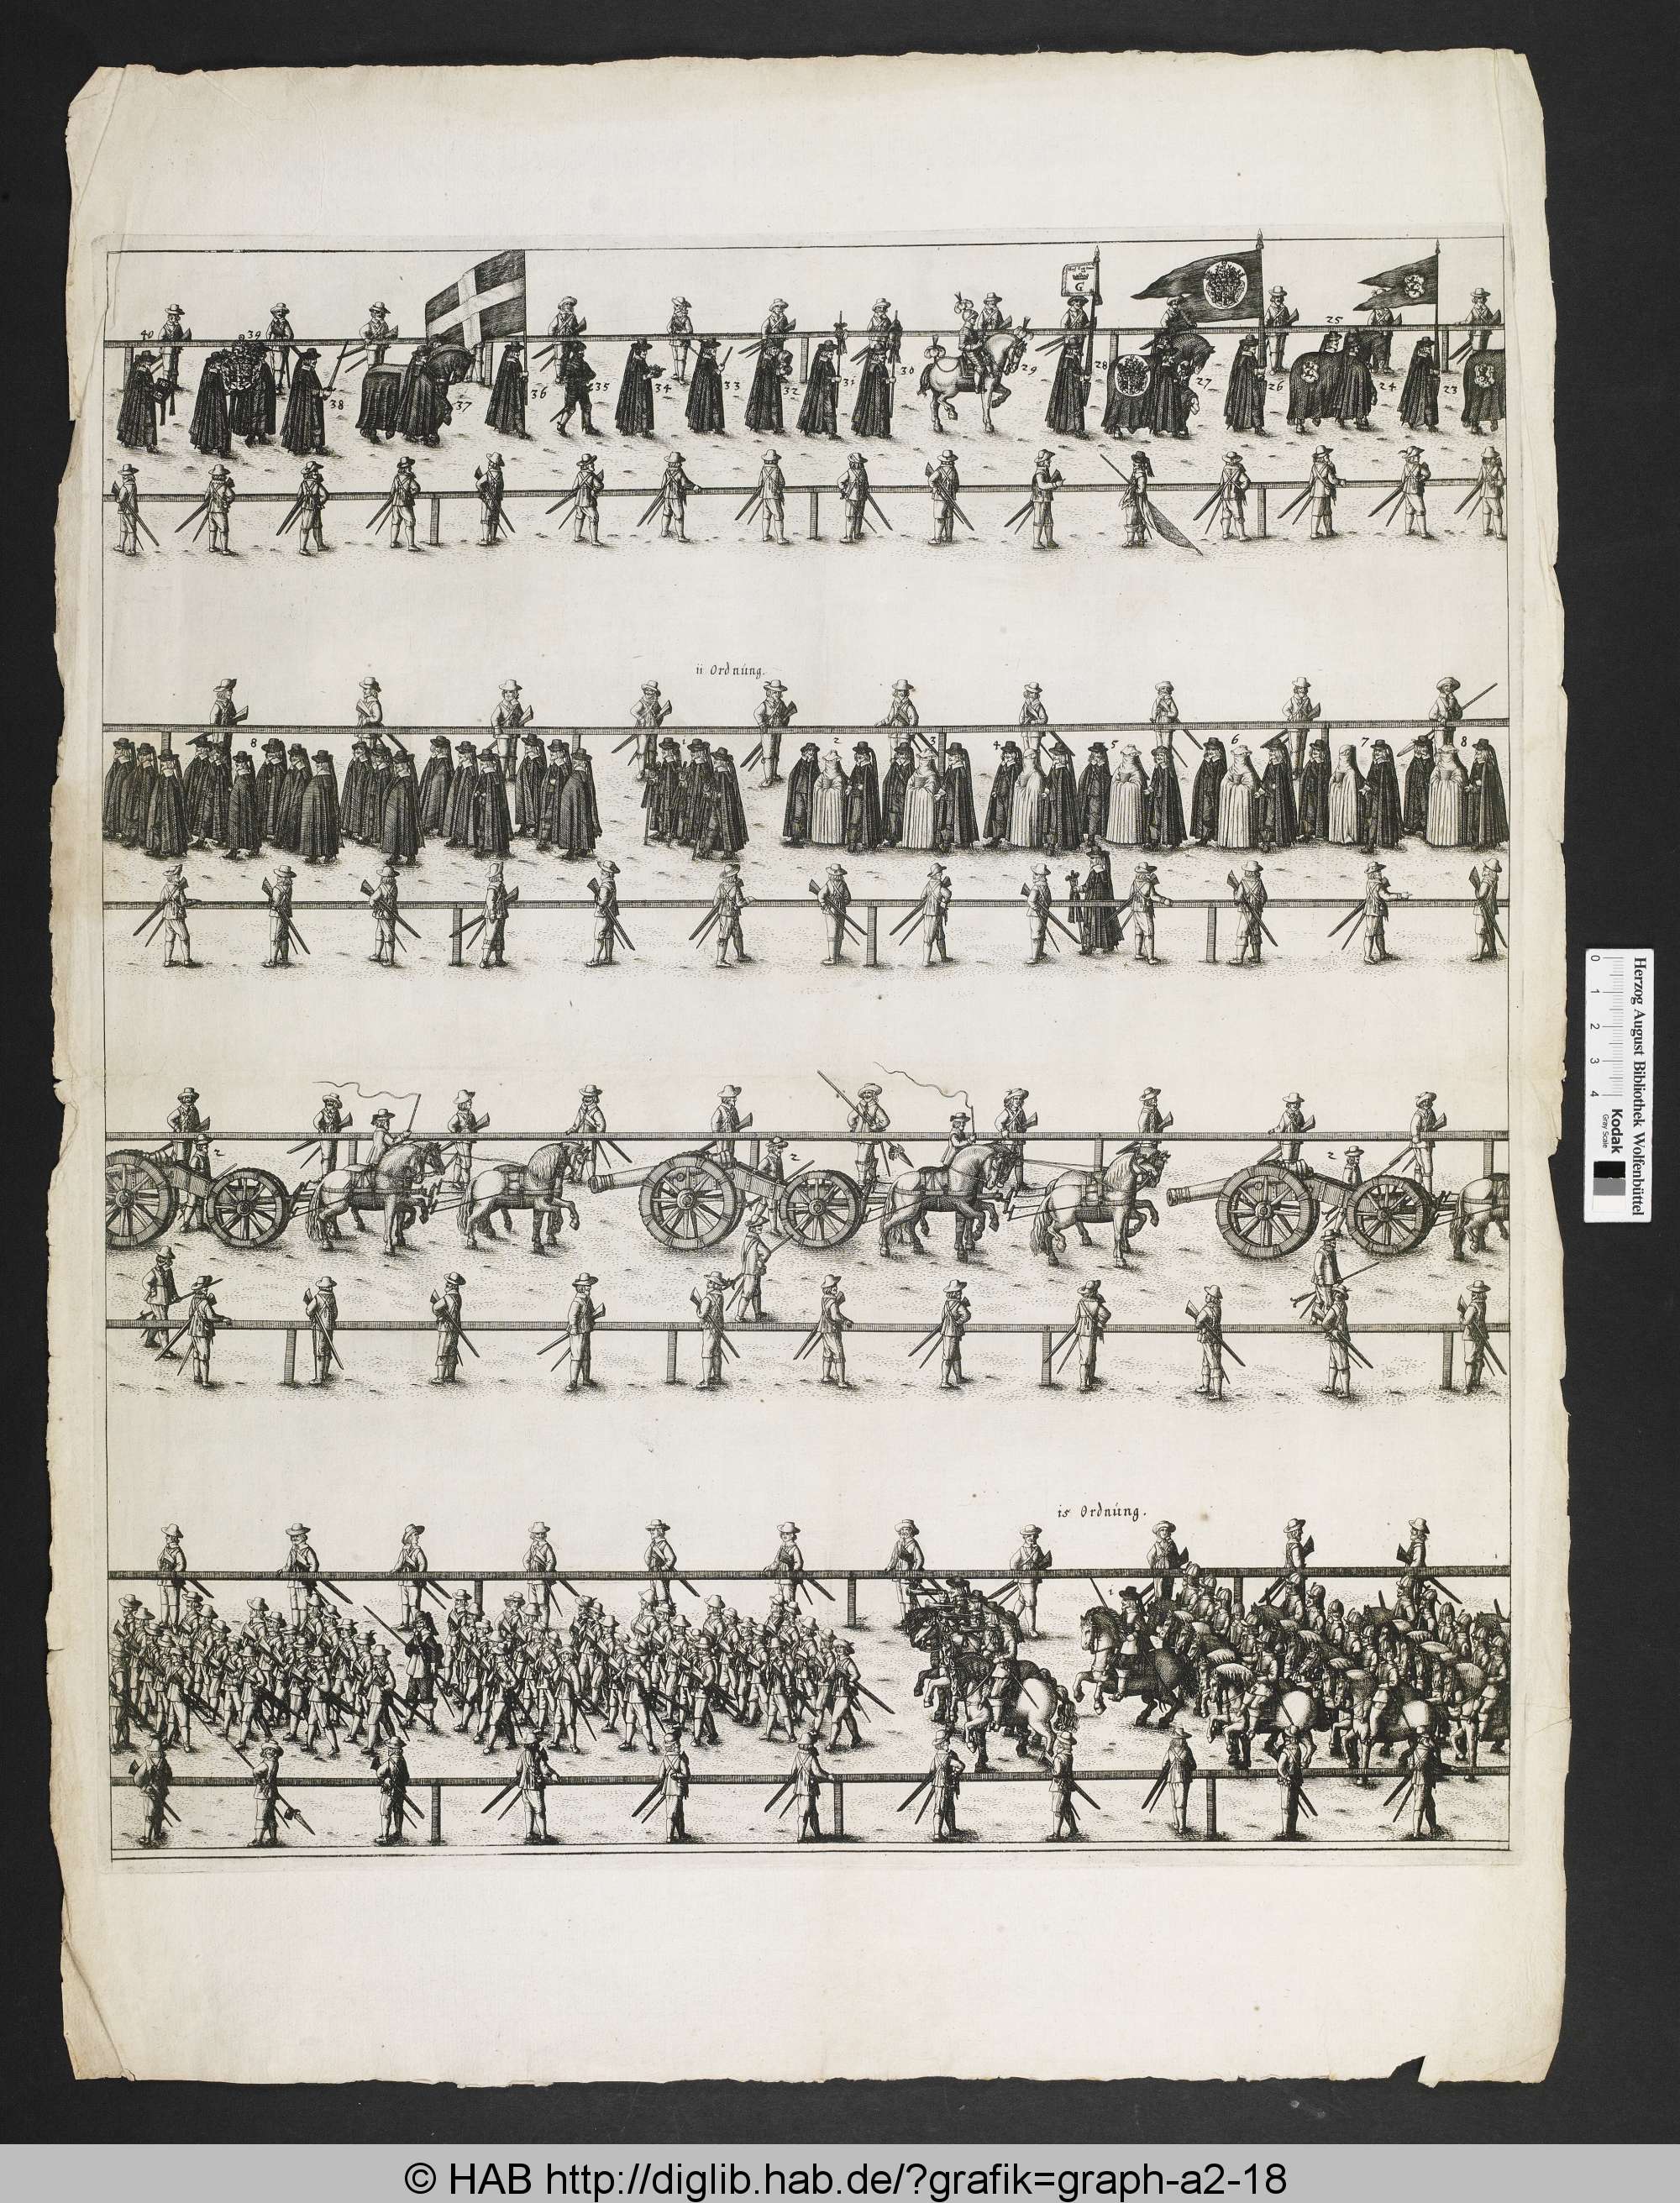 40 39 38 37 36 35 34 33 32 31 30 29 28 27 26 25 24 23
G
11 Ordnúng.
8 1 2 3 4 5 6 7 8
2 2 2
15 Ordnúng.
1
Herzog August Bibliothek Wolfenbüttel
0 1 2 3 4
Kodak
Gray Scale
© HAB http://diglib.hab.de/?grafik=graph-a2-18